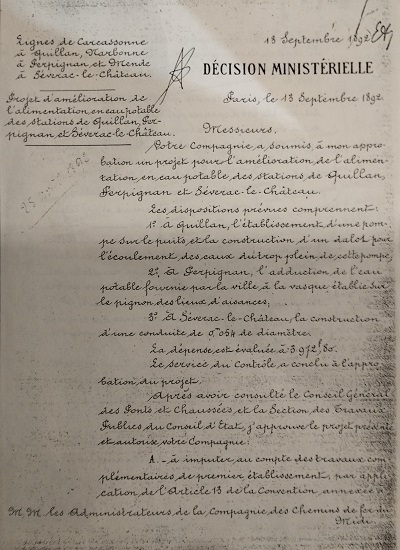 13 Septembre 1892
Lignes de Carcassonne
à Quillan, Narbonne
à Perpignan et Mende
à Séverac-le-Château.
DÉCISION MINISTÉRIELLE
Projet d'amélioration de
l'alimentation en eau potable
des stations de Quillan, Per-
pignan et Séverac-le-Château.
Paris, le 13 Septembre 1892.
Messieurs,
Votre Compagnie a soumis à mon appro-
bation un projet pour l'amélioration de l'alimen-
tation en eau potable des stations de Quillan,
Perpignan et Séverac-le-Château.
Les dispositions prévues comprennent:
1° à Quillan, l'établissement d'une pom-
pe sur le puits et la construction d'un dalot pour
l'écoulement des eaux du trop plein de cette pompe;
2° à Perpignan, l'adduction de l'eau
potable fournie par la ville, à la vasque établie sur
le pignon des lieux d'aisances;
3° à Séverac-le-Château, la construction
d'une conduite de 0,m054 de diamètre.
La dépense est évaluée à 3972f,80.
Le service du Contrôle a conclu à l'appro-
bation du projet.
Après avoir consulté le Conseil Général
des Ponts et Chaussées, et la Section des Travaux
Publics du Conseil d'Etat, j'approuve le projet présenté
et autorise votre Compagnie:
A.- à imputer au compte des travaux com-
plémentaires de premier établissement, par appli-
cation de l'Article 13 de la Convention annexée
M.M. les Administrateurs de la Compagnie des Chemins de fer du
Midi